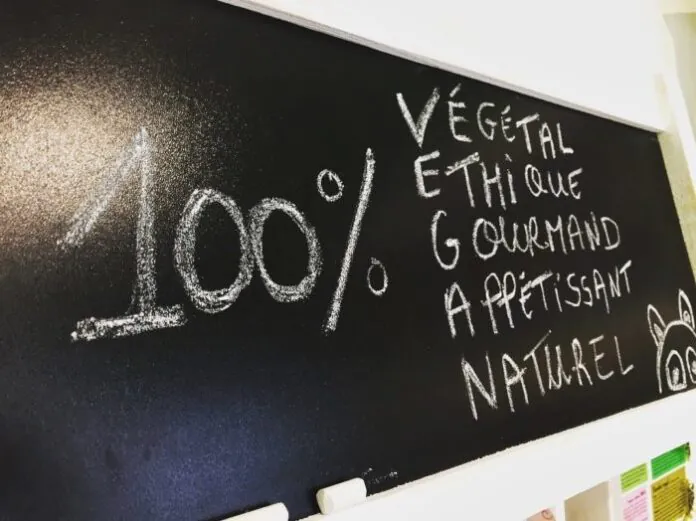 100%
VÉGÉTAL
ETHIQUE
GOURMAND
APPÉTISSANT
NATUREL